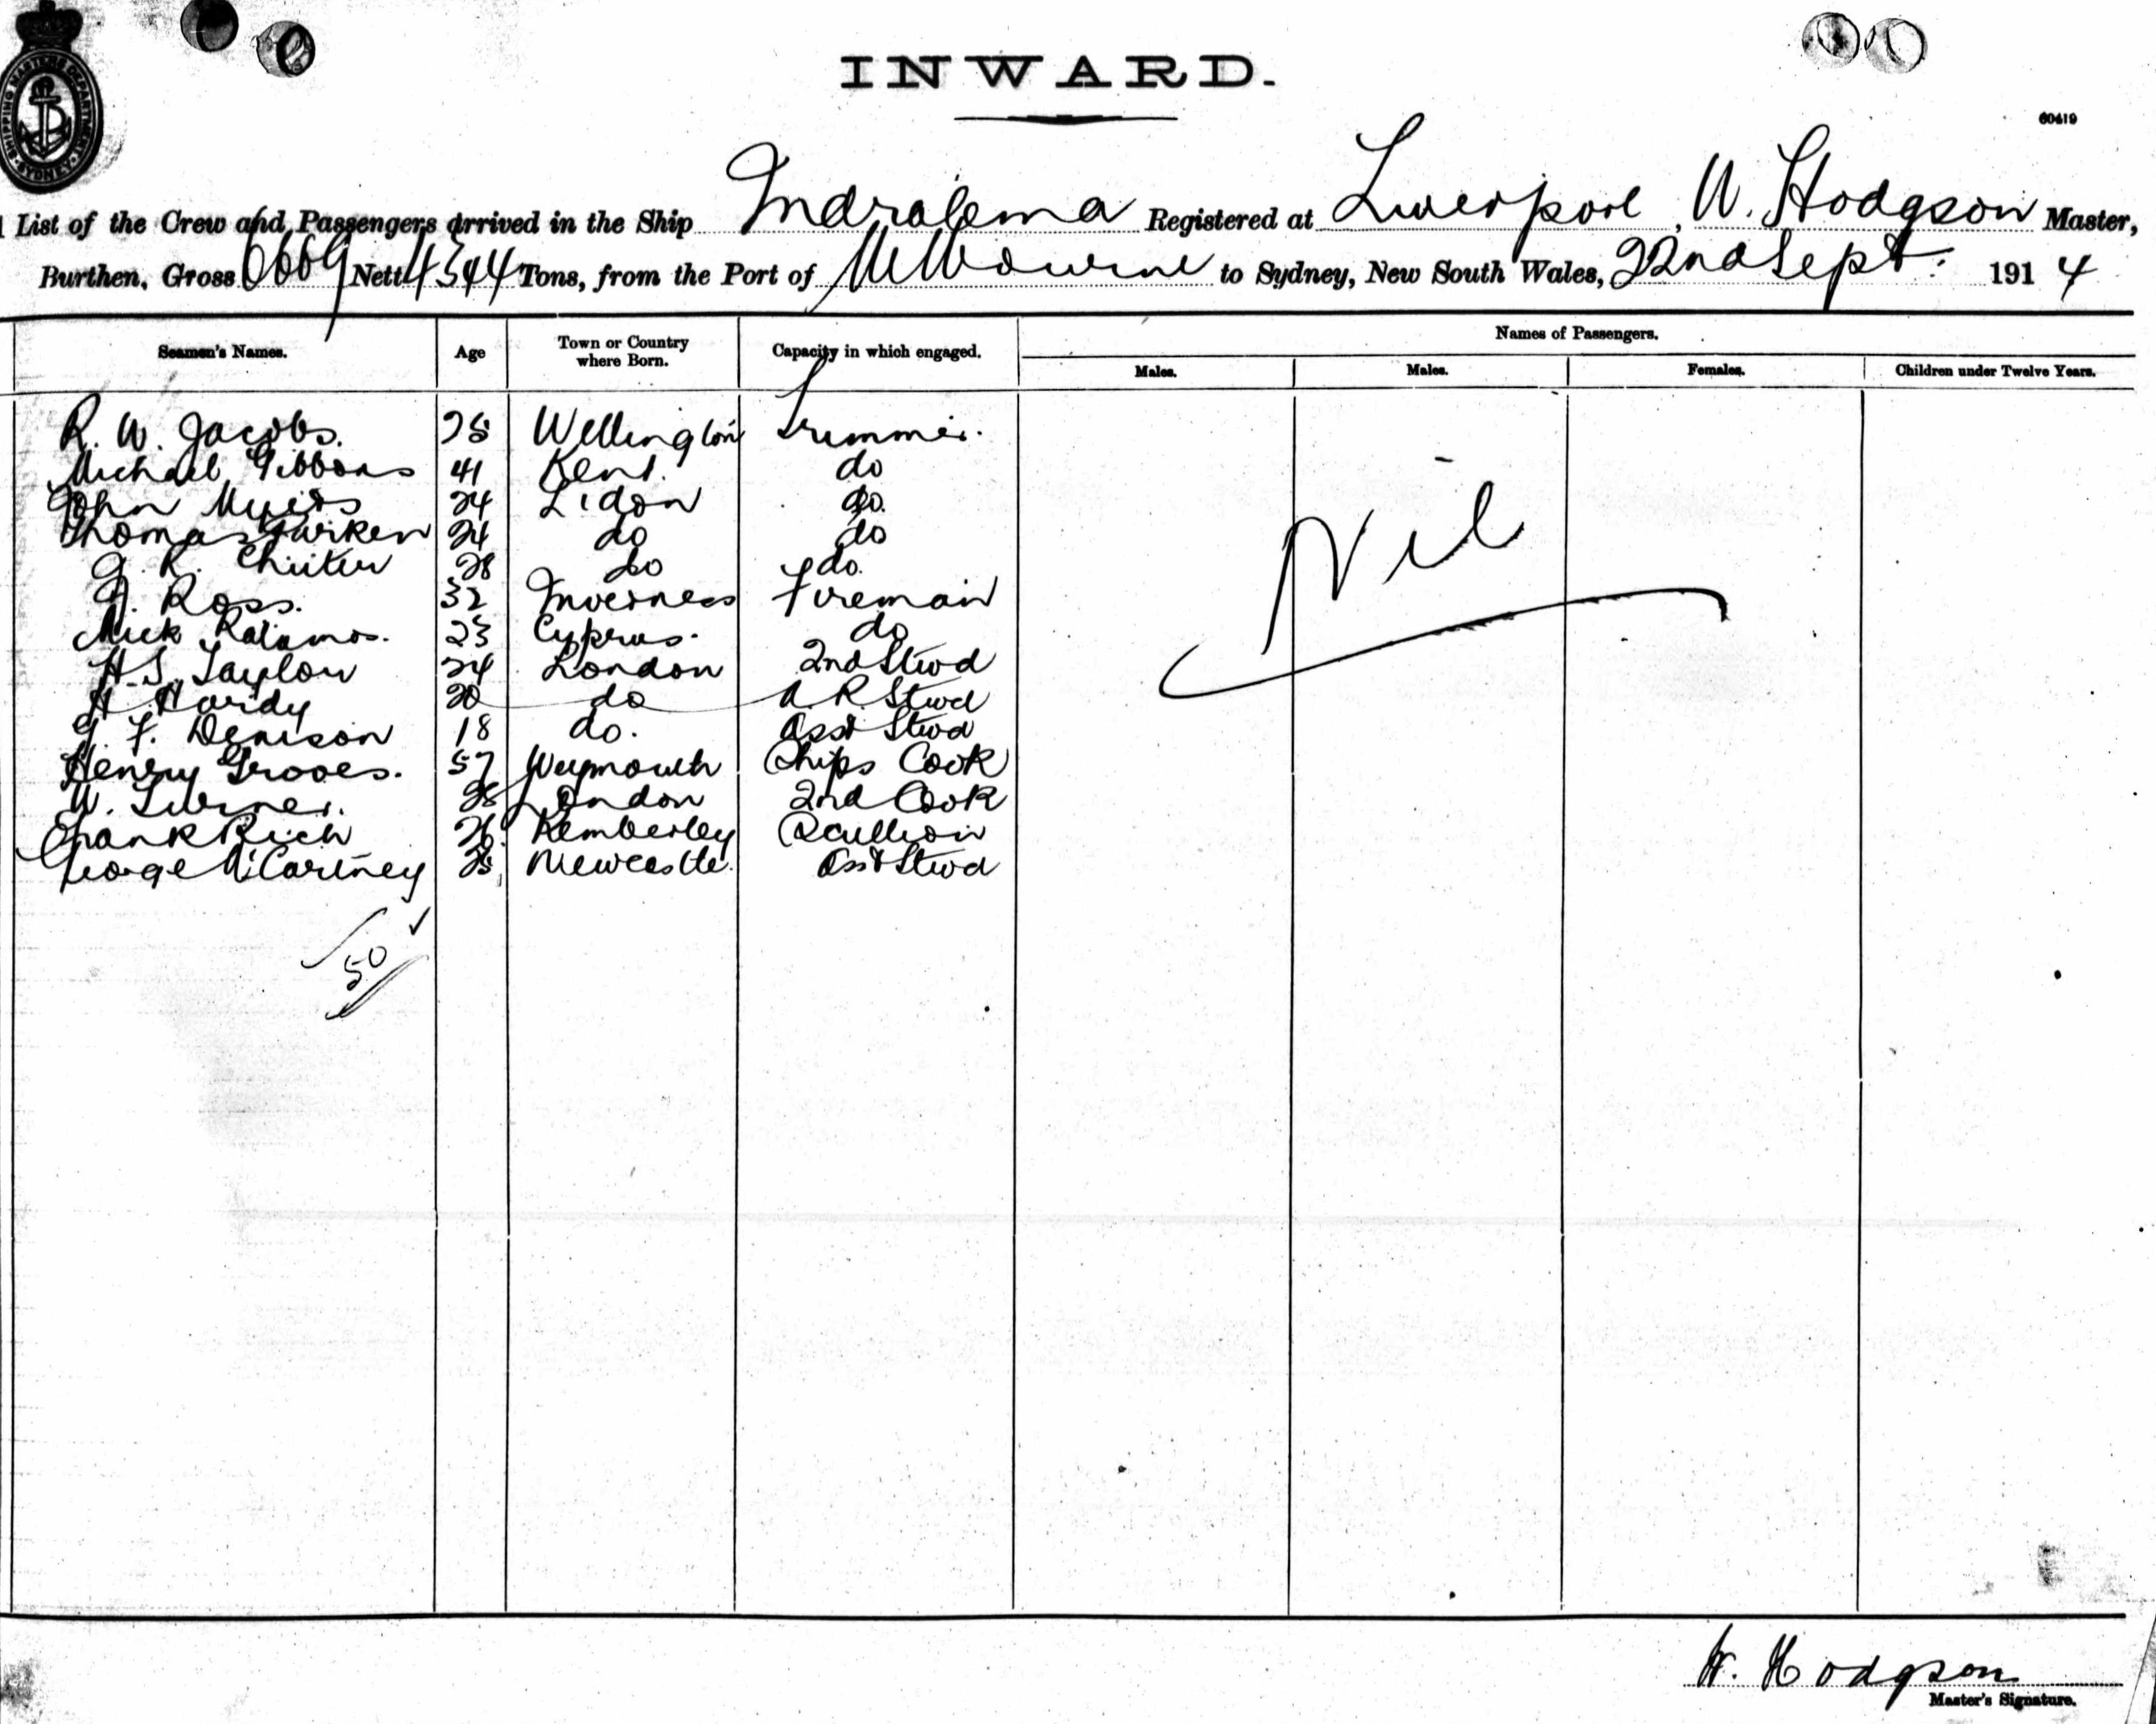 SHIPPING MASTERS DEPARTMENT SYDNEY
INWARD.
60419
List of the Crew and Passengers arrived in the Ship Indralema Registered at Liverpool, W. Hodgson Master,
Burthen, Gross 6669 Nett 4344 Tons, from the Port of Melbourne to Sydney, New South Wales, 22nd Sept. 1914
Names of Passengers.
Seamen's Names. Age Town or Country where Born. Capacity in which engaged. Males. Males. Females. Children under Twelve Years.
R. W. Jacobs. 25 Wellington Trimmer.
Michael Gibbons 41 Kent. do
John Myers 24 Lidon do.
Thomas 24 do do
28 do do.
Ross. 32 Inverness Fireman
Mick 23 Cyprus. do
H. S. Taylor 24 London 2nd Stwd
H. Hardy 20 do A. R. Stwd
F. Denison 18 do. Asst Stwd
Henry Grooes. 57 Weymouth Ships Cook
W. Turner. London 2nd Cook
Frank Rich 26 Kemberley Scullion
George McCartney 25 Newcastle. Asst Stwd
Nil
50
W. Hodgson
Master's Signature.